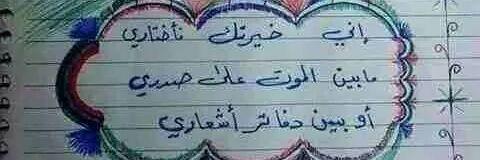 إني خيرتك فأختاري
مابين الموت على صدري
أو بين دفاتر أشعاري